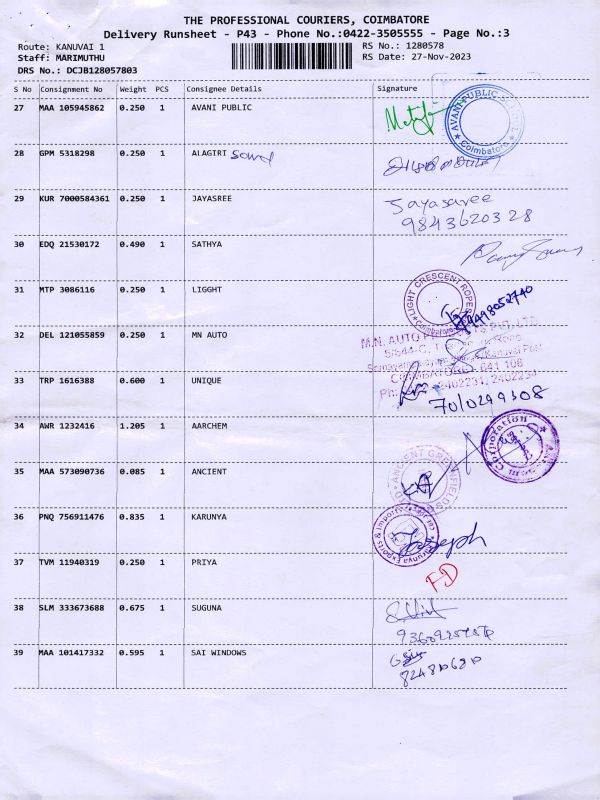 THE PROFESSIONAL COURIERS, COIMBATORE
Delivery Runsheet - P43 - Phone No.:0422-3505555 - Page No.:3
Route: KANUVAI 1
Staff: MARIMUTHU
DRS No.: DCJB128057803
RS No.: 1280578
RS Date: 27-Nov-2023
S No Consignment No Weight PCS Consignee Details Signature
27 MAA 105945862 0.250 1 AVANI PUBLIC
AVANI PUBLIC
Coimbatore
28 GPM 5318298 0.250 1 ALAGIRI
29 KUR 7000584361 0.250 1 JAYASREE Jayasree
9843620328
30 EDQ 21530172 0.490 1 SATHYA
31 MTP 3086116 0.250 1 LIGGHT
LIGHT CRESCENT ROPES
Coimbatore
32 DEL 121055859 0.250 1 MN AUTO
M.N. AUTO
33 TRP 1616388 0.600 1 UNIQUE
34 AWR 1232416 1.205 1 AARCHEM
Corporation
35 MAA 573090736 0.085 1 ANCIENT
ANCIENT GREENFIELDS
36 PNQ 756911476 0.835 1 KARUNYA Joseph
Karunya Exports & Imports
37 TVM 11940319 0.250 1 PRIYA FD
38 SLM 333673688 0.675 1 SUGUNA
39 MAA 101417332 0.595 1 SAI WINDOWS